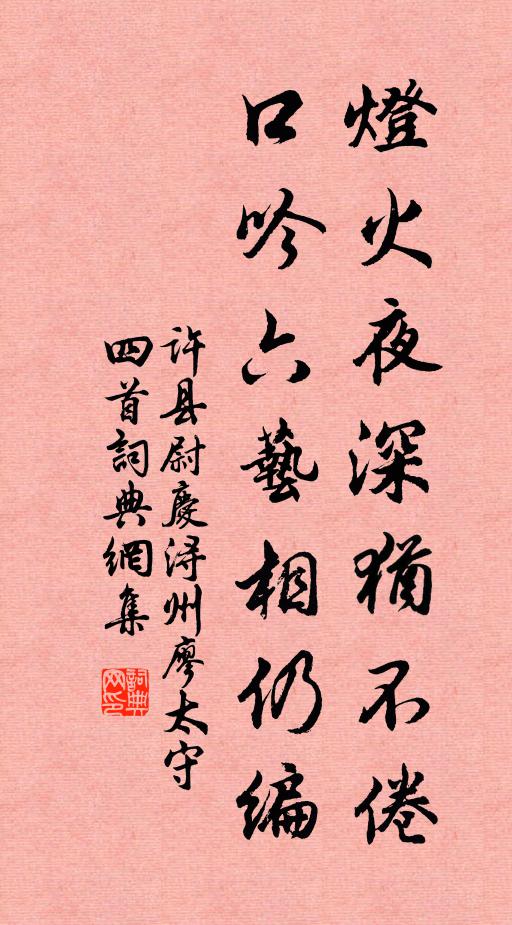 燈火夜深猶不倦
口吟六藝相仍編
許县尉慶浔州廖太守
四首詞典網集
詞典
网印